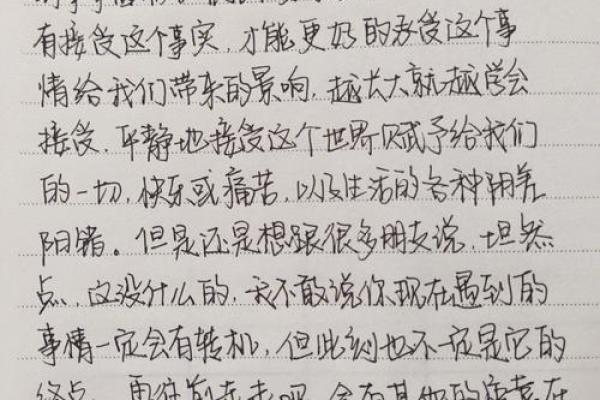 有接受这个事实，才能更好的承受这个事
情给我们带来的影响，越长大就越学会
接受，平静地接受这个世界赋予给我们
的一切，快乐或痛苦，以及生活的各种阴差
阳错。但是还是想跟很多朋友说，坦然
点，这没什么的，我不敢说你现在遇到的
事情一定会有转机，但此刻也不一定是它的
终点，再往前走走吧，会有其他的